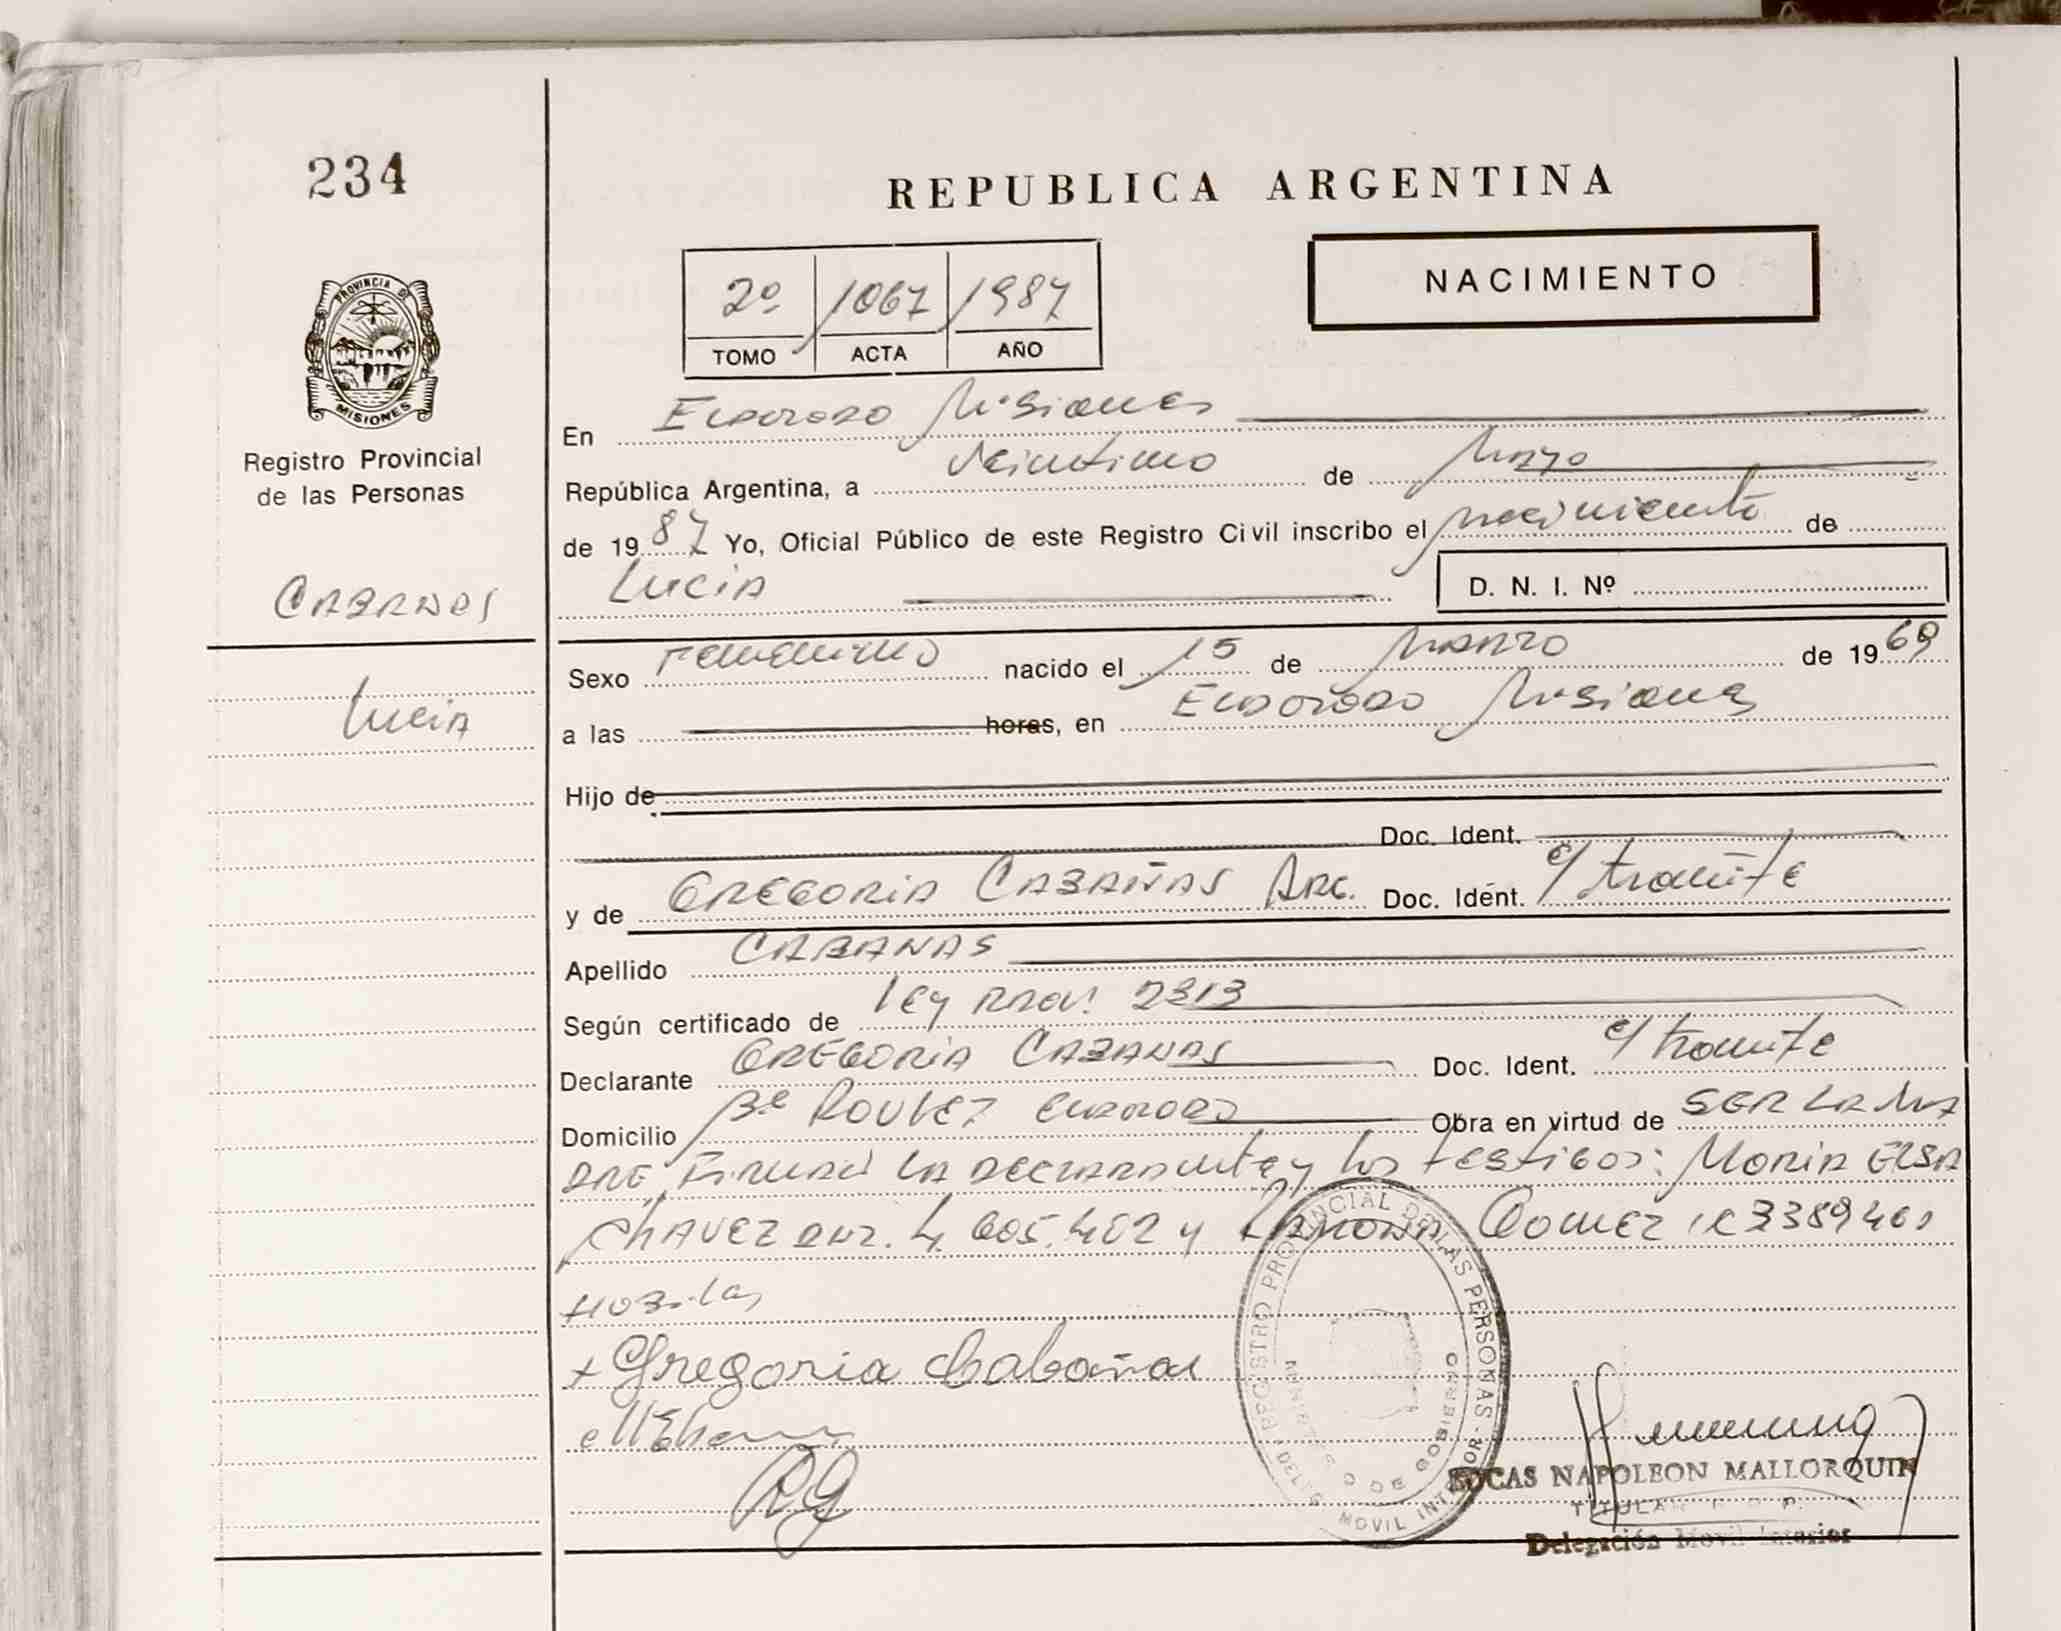 234
REPUBLICA ARGENTINA
2º 1067 1987
TOMO ACTA AÑO
NACIMIENTO
PROVINCIA DE
MISIONES
Registro Provincial
de las Personas
En Eldorado Misiones
República Argentina, a Veintiuno de Mayo
de 1987 Yo, Oficial Público de este Registro Civil inscribo el nacimiento de
Lucia D. N. I. Nº
CABAÑAS
Lucia
Sexo Femenino nacido el 15 de Marzo de 1969
a las horas, en Eldorado Misiones
Hijo de
Doc. Ident.
y de GREGORIA CABAÑAS ARG. Doc. Idént. e/ tramite
Apellido CABAÑAS
Según certificado de Ley Prov. 2313
Declarante GREGORIA CABAÑAS Doc. Ident. e/ tramite
Domicilio Bº ROULET Eldorado Obra en virtud de SER LA MA
DRE, Firman LA DECLARANTE y los testigos: MARIA ELSA
CHAVEZ DNI. 4.605.402 y RAMONA GOMEZ
Gregoria Cabañas
RG
REGISTRO PROVINCIAL DE LAS PERSONAS
MOVIL
MINISTERIO DE GOBIERNO
LUCAS NAPOLEON MALLORQUIN
TITULAR
Delegación Movil Interior